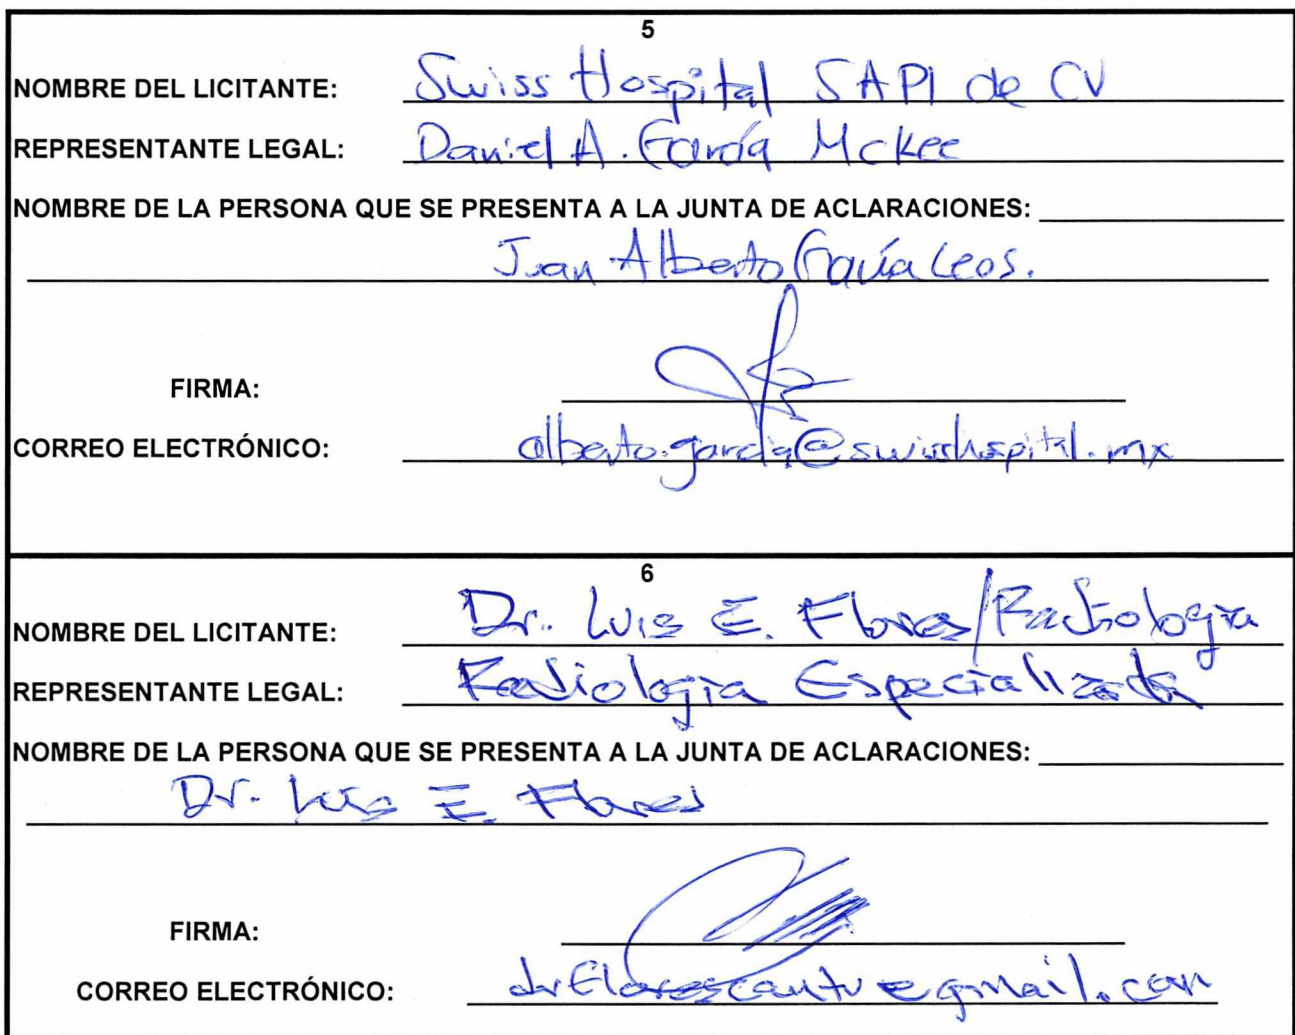 5
NOMBRE DEL LICITANTE: Swiss Hospital SAPI de CV
REPRESENTANTE LEGAL: Daniel A. García Mckee
NOMBRE DE LA PERSONA QUE SE PRESENTA A LA JUNTA DE ACLARACIONES:
Juan Alberto García Leos.
FIRMA:
CORREO ELECTRÓNICO: alberto.garcia@swisshospital.mx
6
NOMBRE DEL LICITANTE: Dr. Luis E. Flores/Radiología
REPRESENTANTE LEGAL: Radiología Especializada
NOMBRE DE LA PERSONA QUE SE PRESENTA A LA JUNTA DE ACLARACIONES:
Dr. Luis E. Flores
FIRMA:
CORREO ELECTRÓNICO: drflorescantu@gmail.com